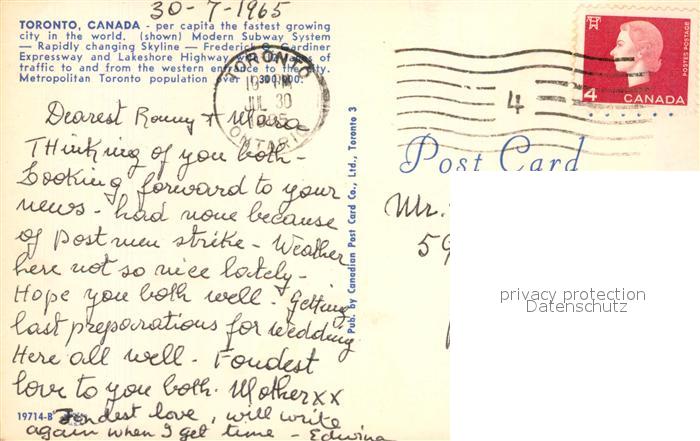 30-7-1965
TORONTO, CANADA - per capita the fastest growing
city in the world. (shown) Modern Subway System
— Rapidly changing Skyline — Frederick G. Gardiner
Expressway and Lakeshore Highway with lanes of
traffic to and from the western entrance to the city.
Metropolitan Toronto population over 1,300,000.
TORONTO
PM
JUL 30
ONTARIO
4
4 CANADA
POSTES POSTAGE
Dearest Ronny +
THinking of you both -
Looking forward to your
news - had none because
of Postmen strike - Weather
here not so nice lately -
Hope you both well - Getting
last preparations for wedding
Here all well - Fondest
love to you both. Mother xx
19714-B
Fondest love, will write
again when I get time - Edwina
Pub. by Canadian Post Card Co., Ltd., Toronto 3
Post Card
Mr.
59
privacy protection
Datenschutz